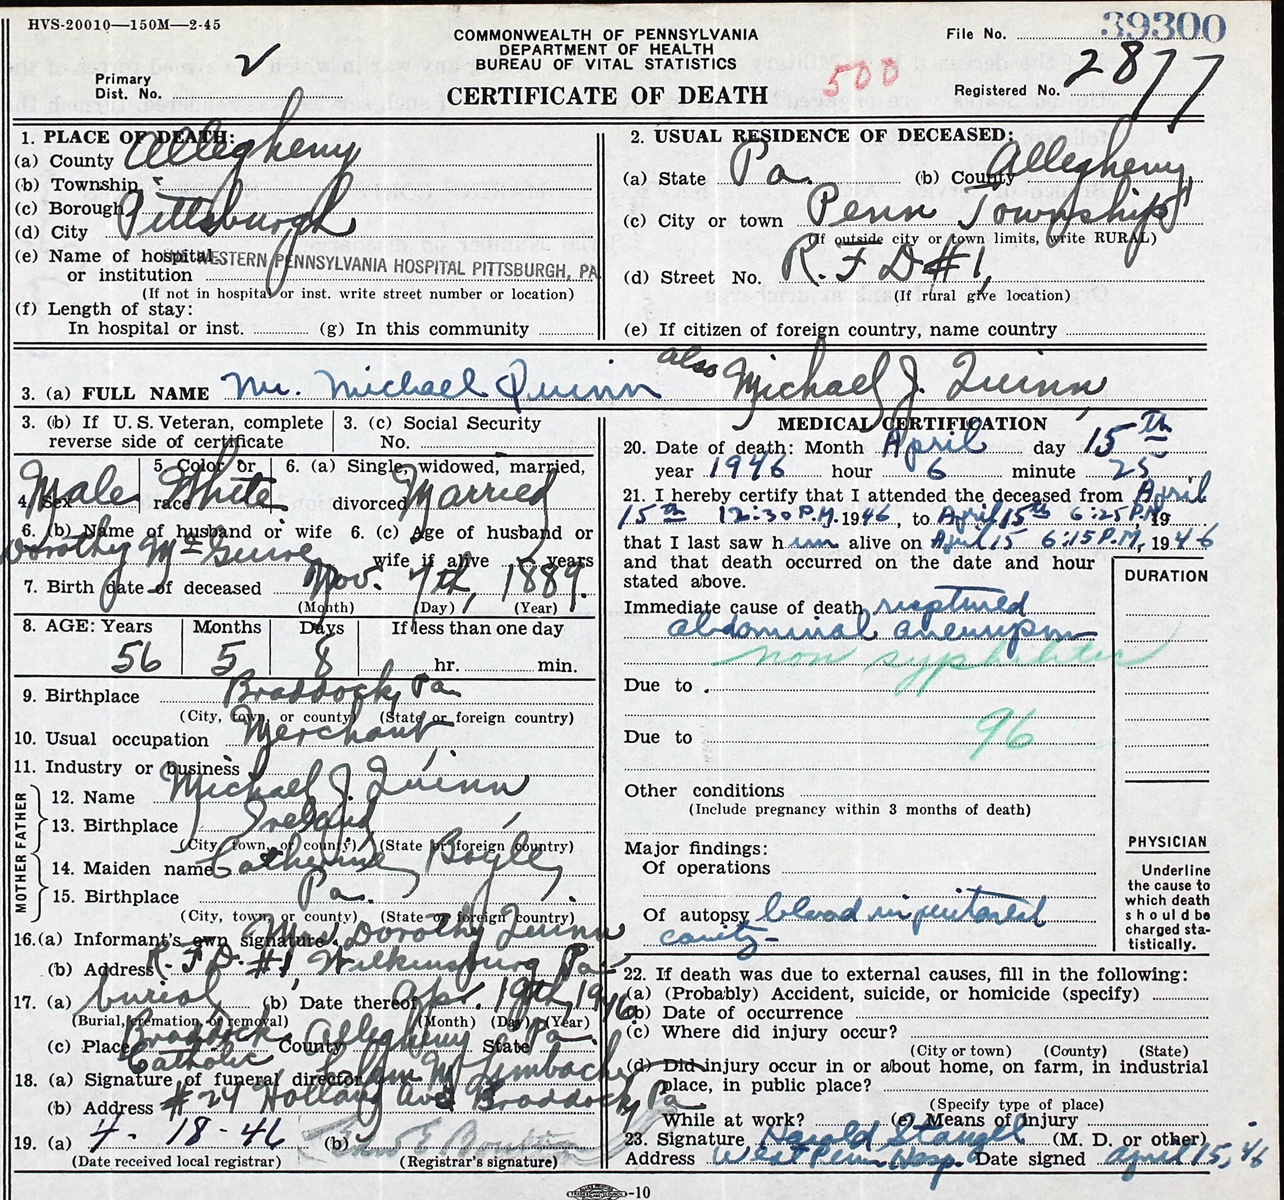 HVS-20010—150M—2-45
39300
COMMONWEALTH OF PENNSYLVANIA
DEPARTMENT OF HEALTH
BUREAU OF VITAL STATISTICS
CERTIFICATE OF DEATH
File No.
Primary
Dist. No.
500
Registered No. 2877
1. PLACE OF DEATH:
(a) County Allegheny
(b) Township
(c) Borough
(d) City Pittsburgh
(e) Name of hospital
or institution WESTERN PENNSYLVANIA HOSPITAL PITTSBURGH, PA
(If not in hospital or inst. write street number or location)
(f) Length of stay:
In hospital or inst. (g) In this community
2. USUAL RESIDENCE OF DECEASED:
(a) State Pa. (b) County Allegheny
(c) City or town Penn Township
(If outside city or town limits, write RURAL)
(d) Street No. R.F.D #1,
(If rural give location)
(e) If citizen of foreign country, name country
3. (a) FULL NAME Mr. Michael Quinn also Michael J. Quinn
3. (b) If U.S. Veteran, complete
reverse side of certificate
3. (c) Social Security
No.
4. Sex Male
5. Color or
race White
6. (a) Single, widowed, married,
divorced Married
6. (b) Name of husband or wife
Dorothy McGuire
6. (c) Age of husband or
wife if alive years
7. Birth date of deceased Nov. 7th, 1889.
(Month) (Day) (Year)
8. AGE: Years Months Days If less than one day
56 5 8 hr. min.
9. Birthplace Braddock, Pa.
(City, town, or county) (State or foreign country)
10. Usual occupation Merchant
11. Industry or business
FATHER
12. Name Michael J. Quinn
13. Birthplace Ireland
(City, town, or county) (State or foreign country)
MOTHER
14. Maiden name Catherine Boyle
15. Birthplace Pa.
(City, town, or county) (State or foreign country)
16.(a) Informant's own signature Mrs Dorothy Quinn
(b) Address R.F.D. #1, Wilkinsburg Pa
17. (a) burial (b) Date thereof Apr. 19th, 1946
(Burial, cremation, or removal) (Month) (Day) (Year)
(c) Place Braddock Catholic County Allegheny State Pa.
18. (a) Signature of funeral director
(b) Address #24 Holland Ave Braddock, Pa.
19. (a) 4-18-46 (b)
(Date received local registrar) (Registrar's signature)
MEDICAL CERTIFICATION
20. Date of death: Month April day 15th
year 1946 hour 6 minute 25
21. I hereby certify that I attended the deceased from April
15th 12:30 P.M. 1946, to April 15th 6:25 P.M, 19
that I last saw him alive on April 15 6:15 P.M, 1946
and that death occurred on the date and hour
stated above.
DURATION
Immediate cause of death ruptured
abdominal aneurysm
non syphilitic
Due to
Due to 96
Other conditions
(Include pregnancy within 3 months of death)
Major findings:
Of operations
Of autopsy blood in peritoneal
cavity-
PHYSICIAN
Underline
the cause to
which death
should be
charged sta-
tistically.
22. If death was due to external causes, fill in the following:
(a) (Probably) Accident, suicide, or homicide (specify)
(b) Date of occurrence
(c) Where did injury occur?
(City or town) (County) (State)
(d) Did injury occur in or about home, on farm, in industrial
place, in public place?
(Specify type of place)
While at work? (e) Means of injury
23. Signature Harold (M. D. or other)
Address West Penn Hosp. Date signed April 15, 46
-10